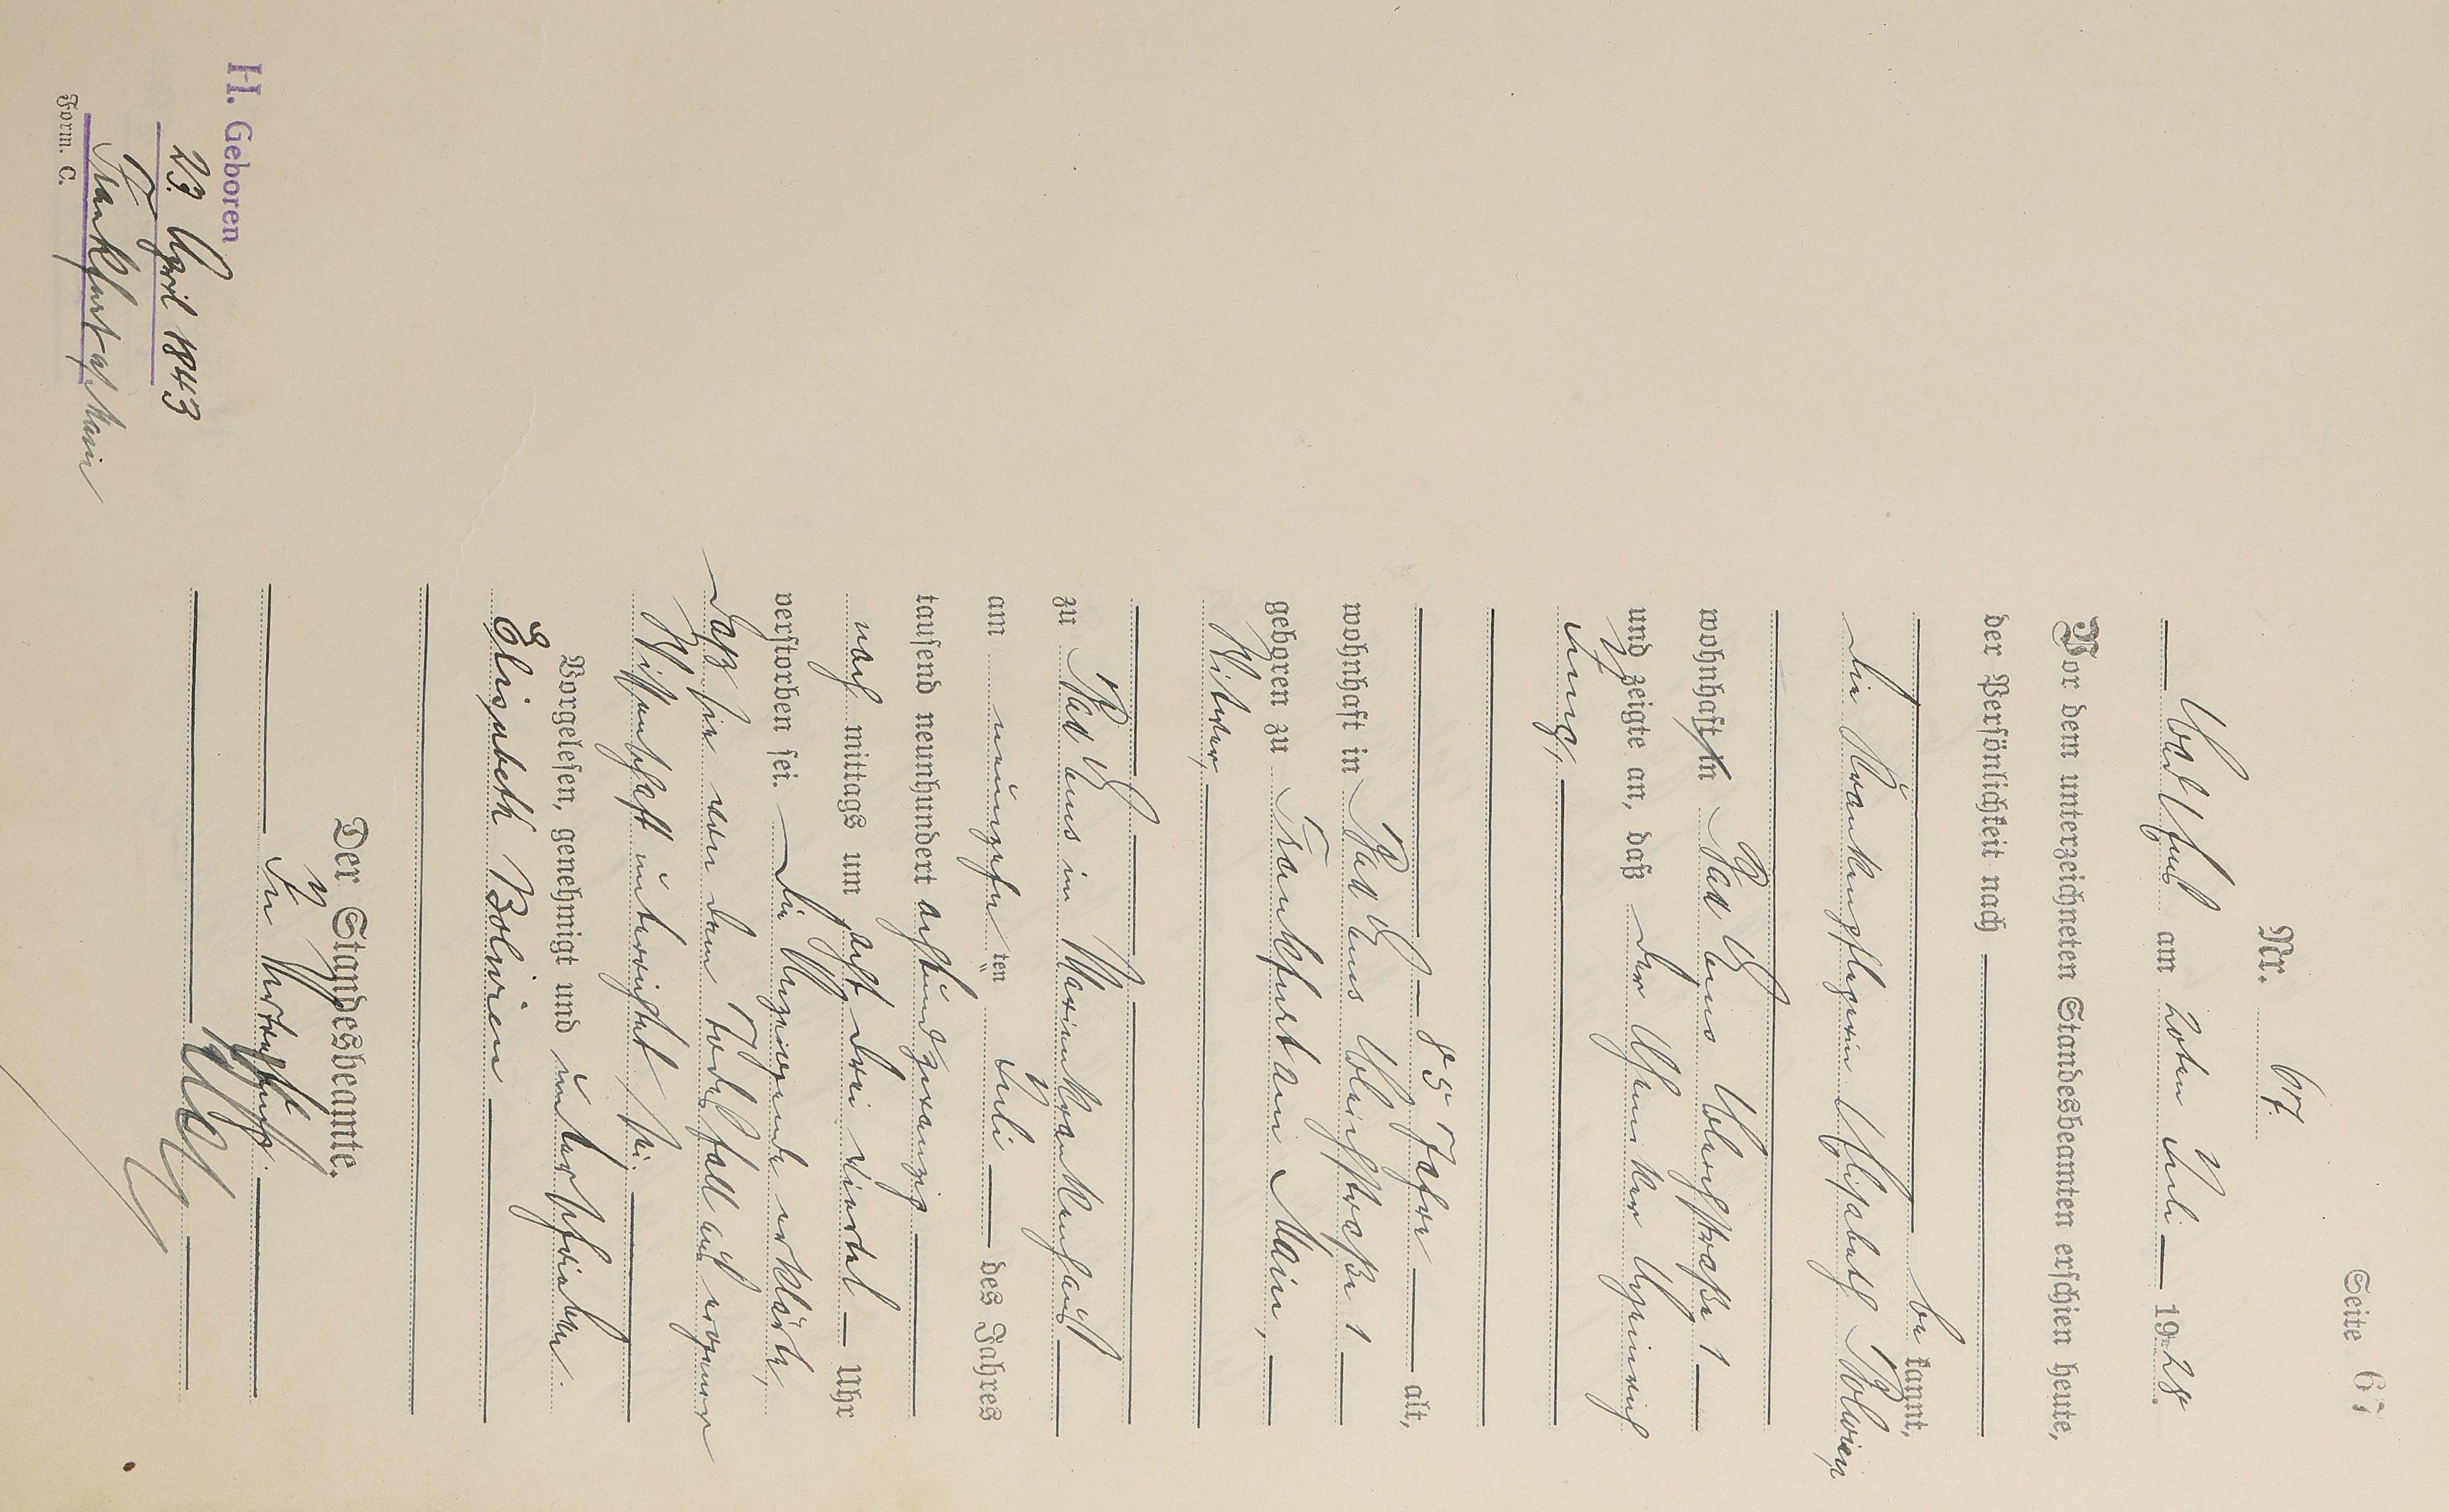 Seite 67
Nr. 67.
Bad Ems am 20ten Juli 1928.
Vor dem unterzeichneten Standesbeamten erschien heute,
der Persönlichkeit nach
be kannt,
die Krankenpflegerin Elisabeth Bolwien
wohnhaft in Bad Ems Bleichstraße 1
und zeigte an, daß der Chemiker Heinrich
Jung,
85 Jahre alt,
wohnhaft in Bad Ems Bleichstraße 1
geboren zu Frankfurt am Main,
Witwer,
zu Bad Ems im Marienkrankenhaus
am neunzehn ten Juli des Jahres
tausend neunhundert achtundzwanzig
nach mittags um acht drei viertel Uhr
verstorben sei. Die Anzeigende erklärte,
daß sie von dem Todesfall aus eigener
Wissenschaft unterrichtet sei.
Vorgelesen, genehmigt und unterschrieben.
Elisabeth Bolwien
Der Standesbeamte.
In Vertretung.
H. Geboren
23 April 1843
Frankfurt a/Main
Form. C.